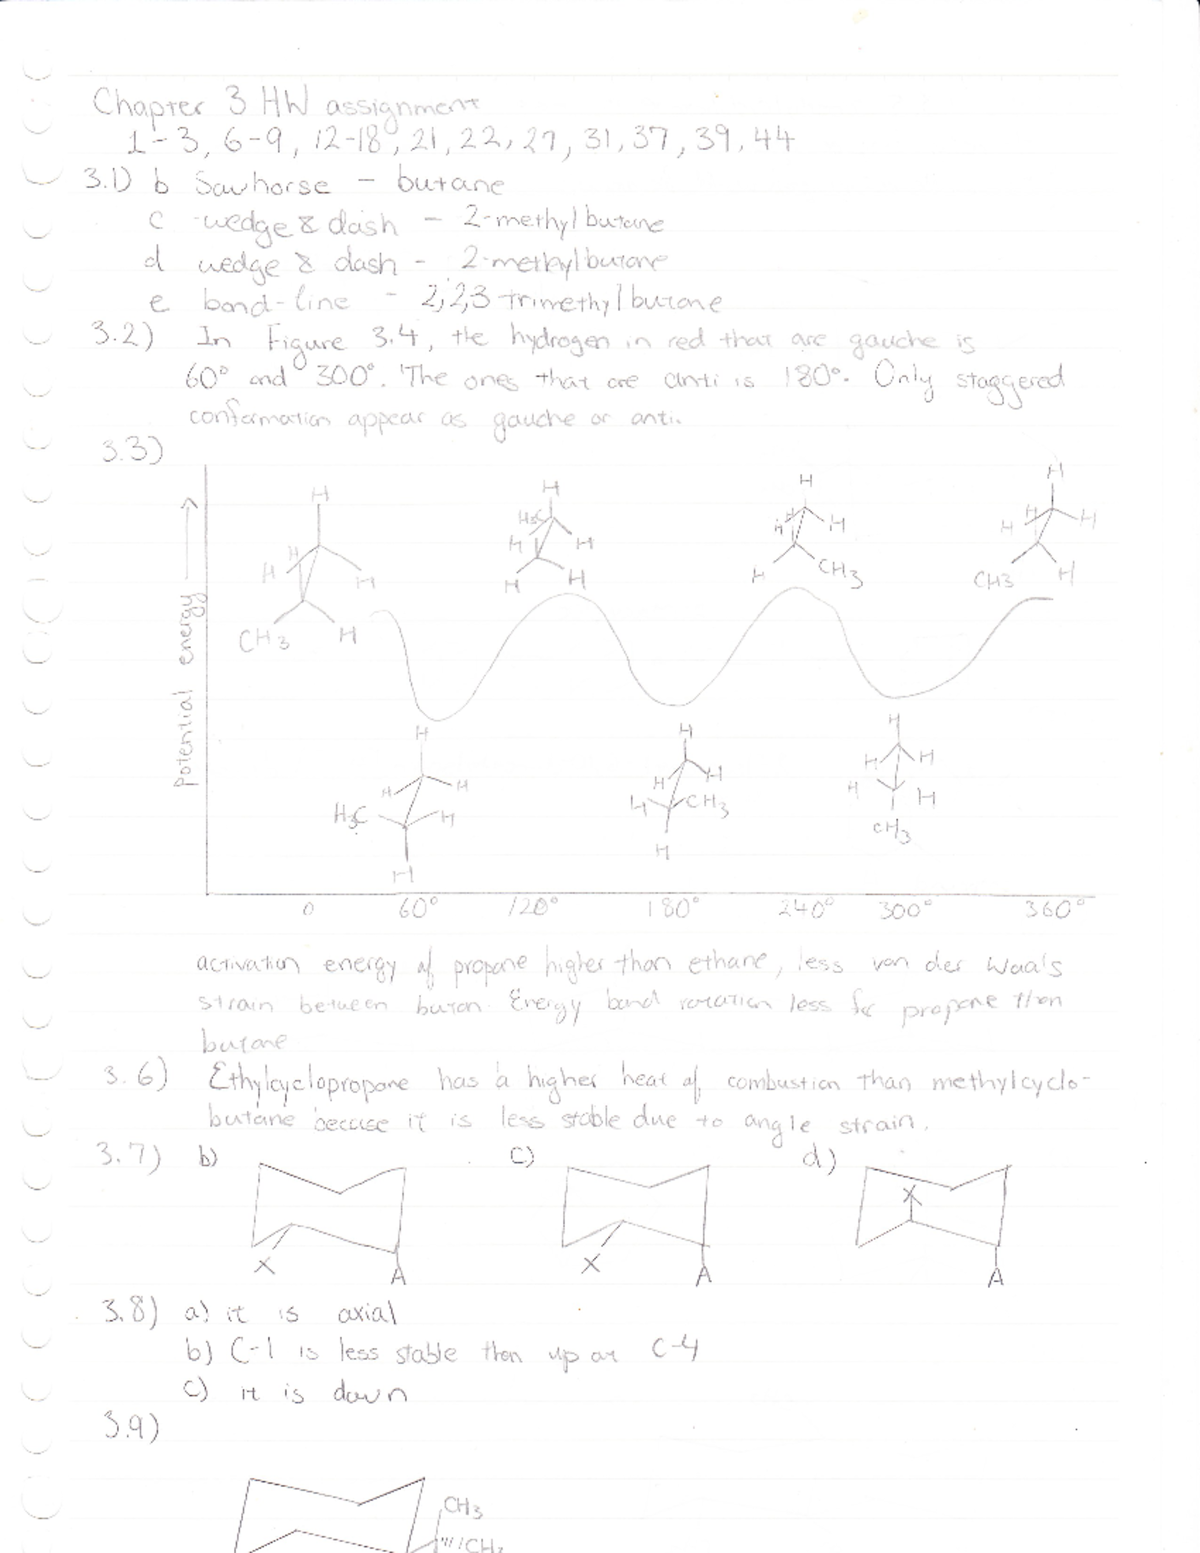 Chapter 3 HW assignment
1-3, 6-9, 12-18, 21, 22, 27, 31, 37, 39, 44
3.1) b Sawhorse - butane
c wedge & dash - 2-methylbutane
d wedge & dash - 2-methylbutane
e bond-line - 2,2,3 trimethylbutane
3.2) In Figure 3.4, the hydrogen in red that are gauche is
60° and 300°. The ones that are anti is 180°. Only staggered
conformation appear as gauche or anti.
3.3)
Potential energy
H
H H H
CH3 H
H
H3C
H H
H H
H
H H
H CH3
H
H H H
CH3 H
H
H H
H3C H
H
H
H H
H CH3
H
H
H H
H H
CH3
0 60° 120° 180° 240° 300° 360°
activation energy of propane higher than ethane, less van der Waal's
strain between butan. Energy bond rotation less for propane then
butane
3.6) Ethylcyclopropane has a higher heat of combustion than methylcyclo-
butane because it is less stable due to angle strain.
3.7) b) c) d)
X A X A X A
3.8) a) it is axial
b) C-1 is less stable then up at C-4
c) it is down
3.9)
CH3
CH3